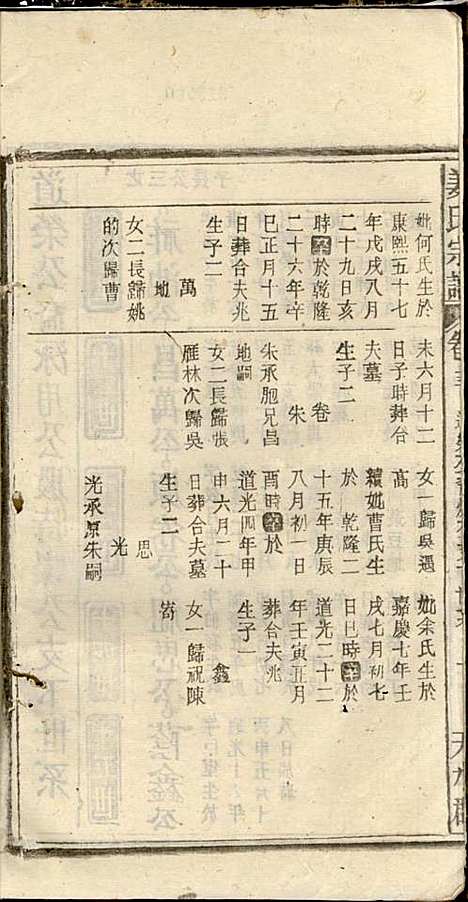 姜氏宗譜
卷
妣何氏生於
康熙五十七
年戊戌八月
二十九日亥
時卒於乾隆
二十六年辛
巳正月十五
日葬合夫兆
生子二
萬
地
女二長歸姚
的次歸曹
未六月十二
日子時葬合
夫墓
生子二
卷
朱
朱承胞兄昌
地嗣
女二長歸張
雁林次歸吳
女一歸吳遇
高
續妣曹氏生
於乾隆二
十五年庚辰
八月初一日
酉時卒於
道光四年甲
申六月二十
日葬合夫墓
生子二
思
光
光承原朱嗣
妣余氏生於
嘉慶七年壬
戌七月初七
日巳時卒於
道光二十二
年壬寅五月
葬合夫兆
生子一
鑫
女一歸祝陳
寄
天水郡